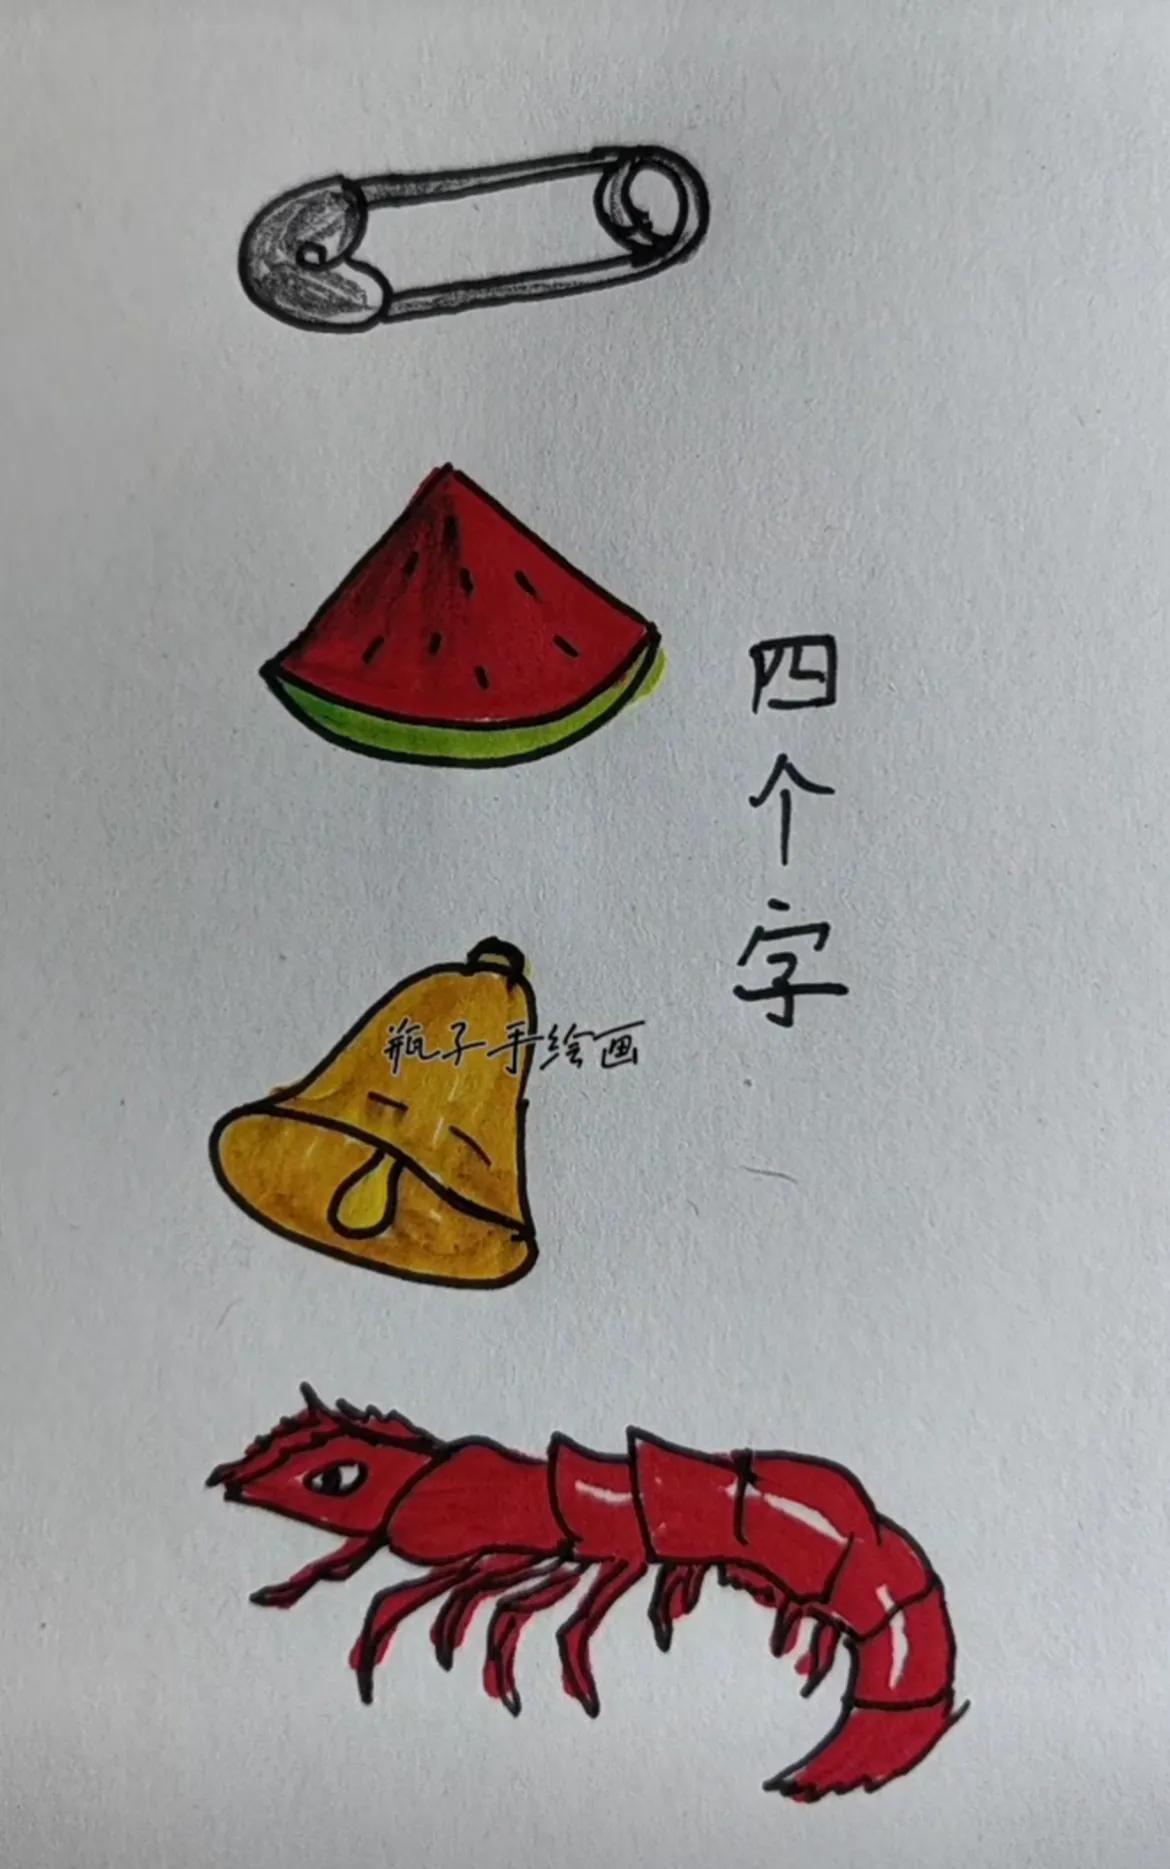 四个字
瓶子手绘画